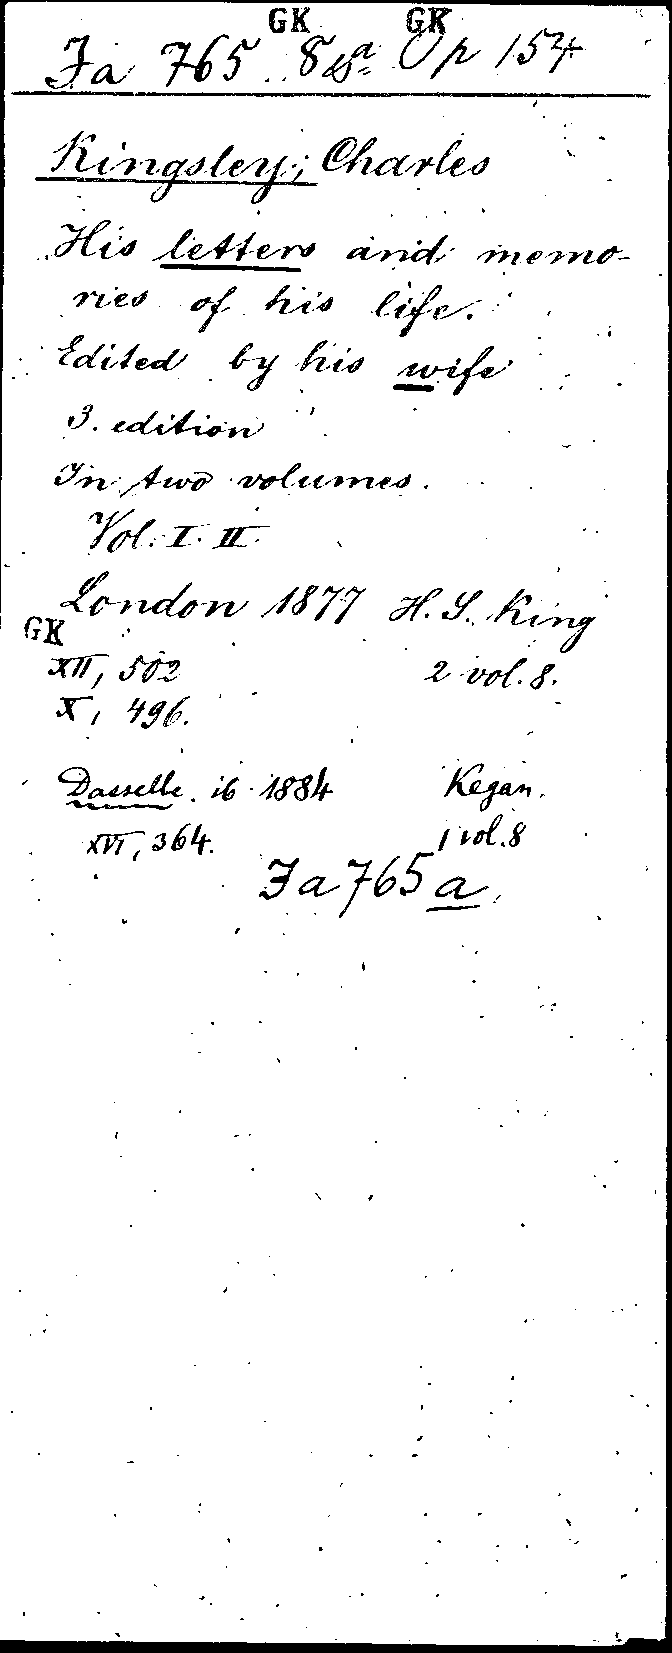 GK GK
Fa 765 8° Op 154
Kingsley; Charles
His letters and memo-
ries of his life.
Edited by his wife
3. edition
In two volumes.
Vol. I. II.
London 1877 H. S. King
GK
XII, 502 2 vol. 8.
X, 496.
Dasselbe. ib 1884 Kegan.
XVI, 364. 1 vol. 8
Fa 765 a